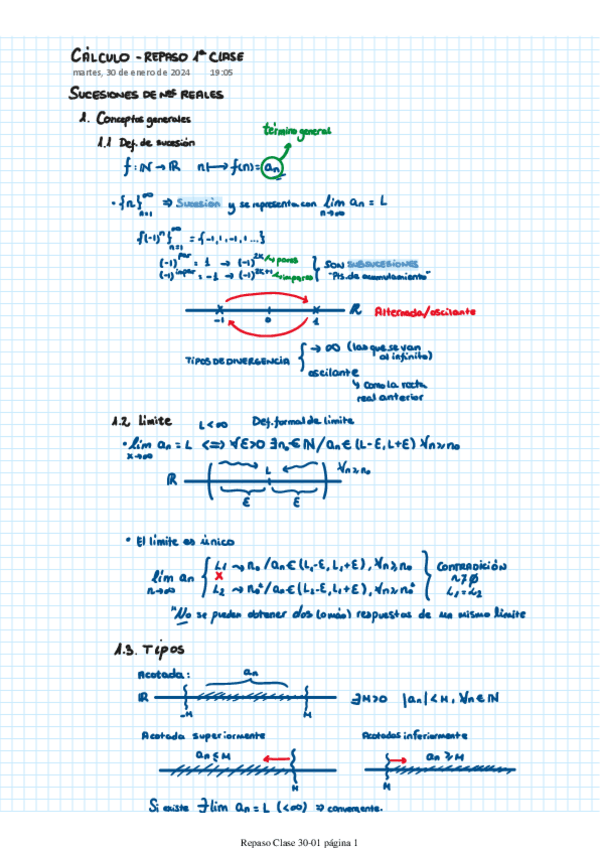 CÁLCULO - REPASO 1ª CLASE
martes, 30 de enero de 2024 19:05
SUCESIONES DE NºS REALES
1. Conceptos generales
término general
1.1 Def. de sucesión
f: ℕ → ℝ n ↦ f(n) = aₙ
• {n}ₙ₌₁^∞ ⇒ Sucesión y se representa con lim aₙ = L
n→∞
{(-1)ⁿ}ₙ₌₁^∞ = {-1, 1, -1, 1 ...}
(-1)^par = 1 → (-1)^2K ← pares
(-1)^impar = -1 → (-1)^2K+1 ← impares
SON SUBSUCESIONES
"Pts. de acumulamiento"
ℝ Alternada/oscilante
-1 0 1
TIPOS DE DIVERGENCIA
→ ∞ (las que se van al infinito)
oscilante
↳ como la recta real anterior
1.2. Límite L<∞ Def. formal de límite
• lim aₙ = L <=> ∀ε>0 ∃n₀ ∈ ℕ / aₙ ∈ (L-ε, L+ε) ∀n≥n₀
x→∞
ℝ L ∀n≥n₀
ε ε
• El límite es único
lim aₙ
n→∞
L₁ → n₀ / aₙ ∈ (L₁-ε, L₁+ε), ∀n≥n₀
x
L₂ → n₀² / aₙ ∈ (L₂-ε, L₂+ε), ∀n≥n₀²
CONTRADICIÓN
L₁=L₂
"No se pueden obtener dos (o más) respuestas de un mismo límite
1.3. TIPOS
Acotada: aₙ
ℝ -M M ∃M>0 |aₙ|<M, ∀n∈ℕ
Acotada superiormente Acotadas inferiormente
aₙ ≤ M aₙ ≥ M
M M
Si existe ∃ lim aₙ = L (<∞) ⇒ convergente.
Repaso Clase 30-01 página 1